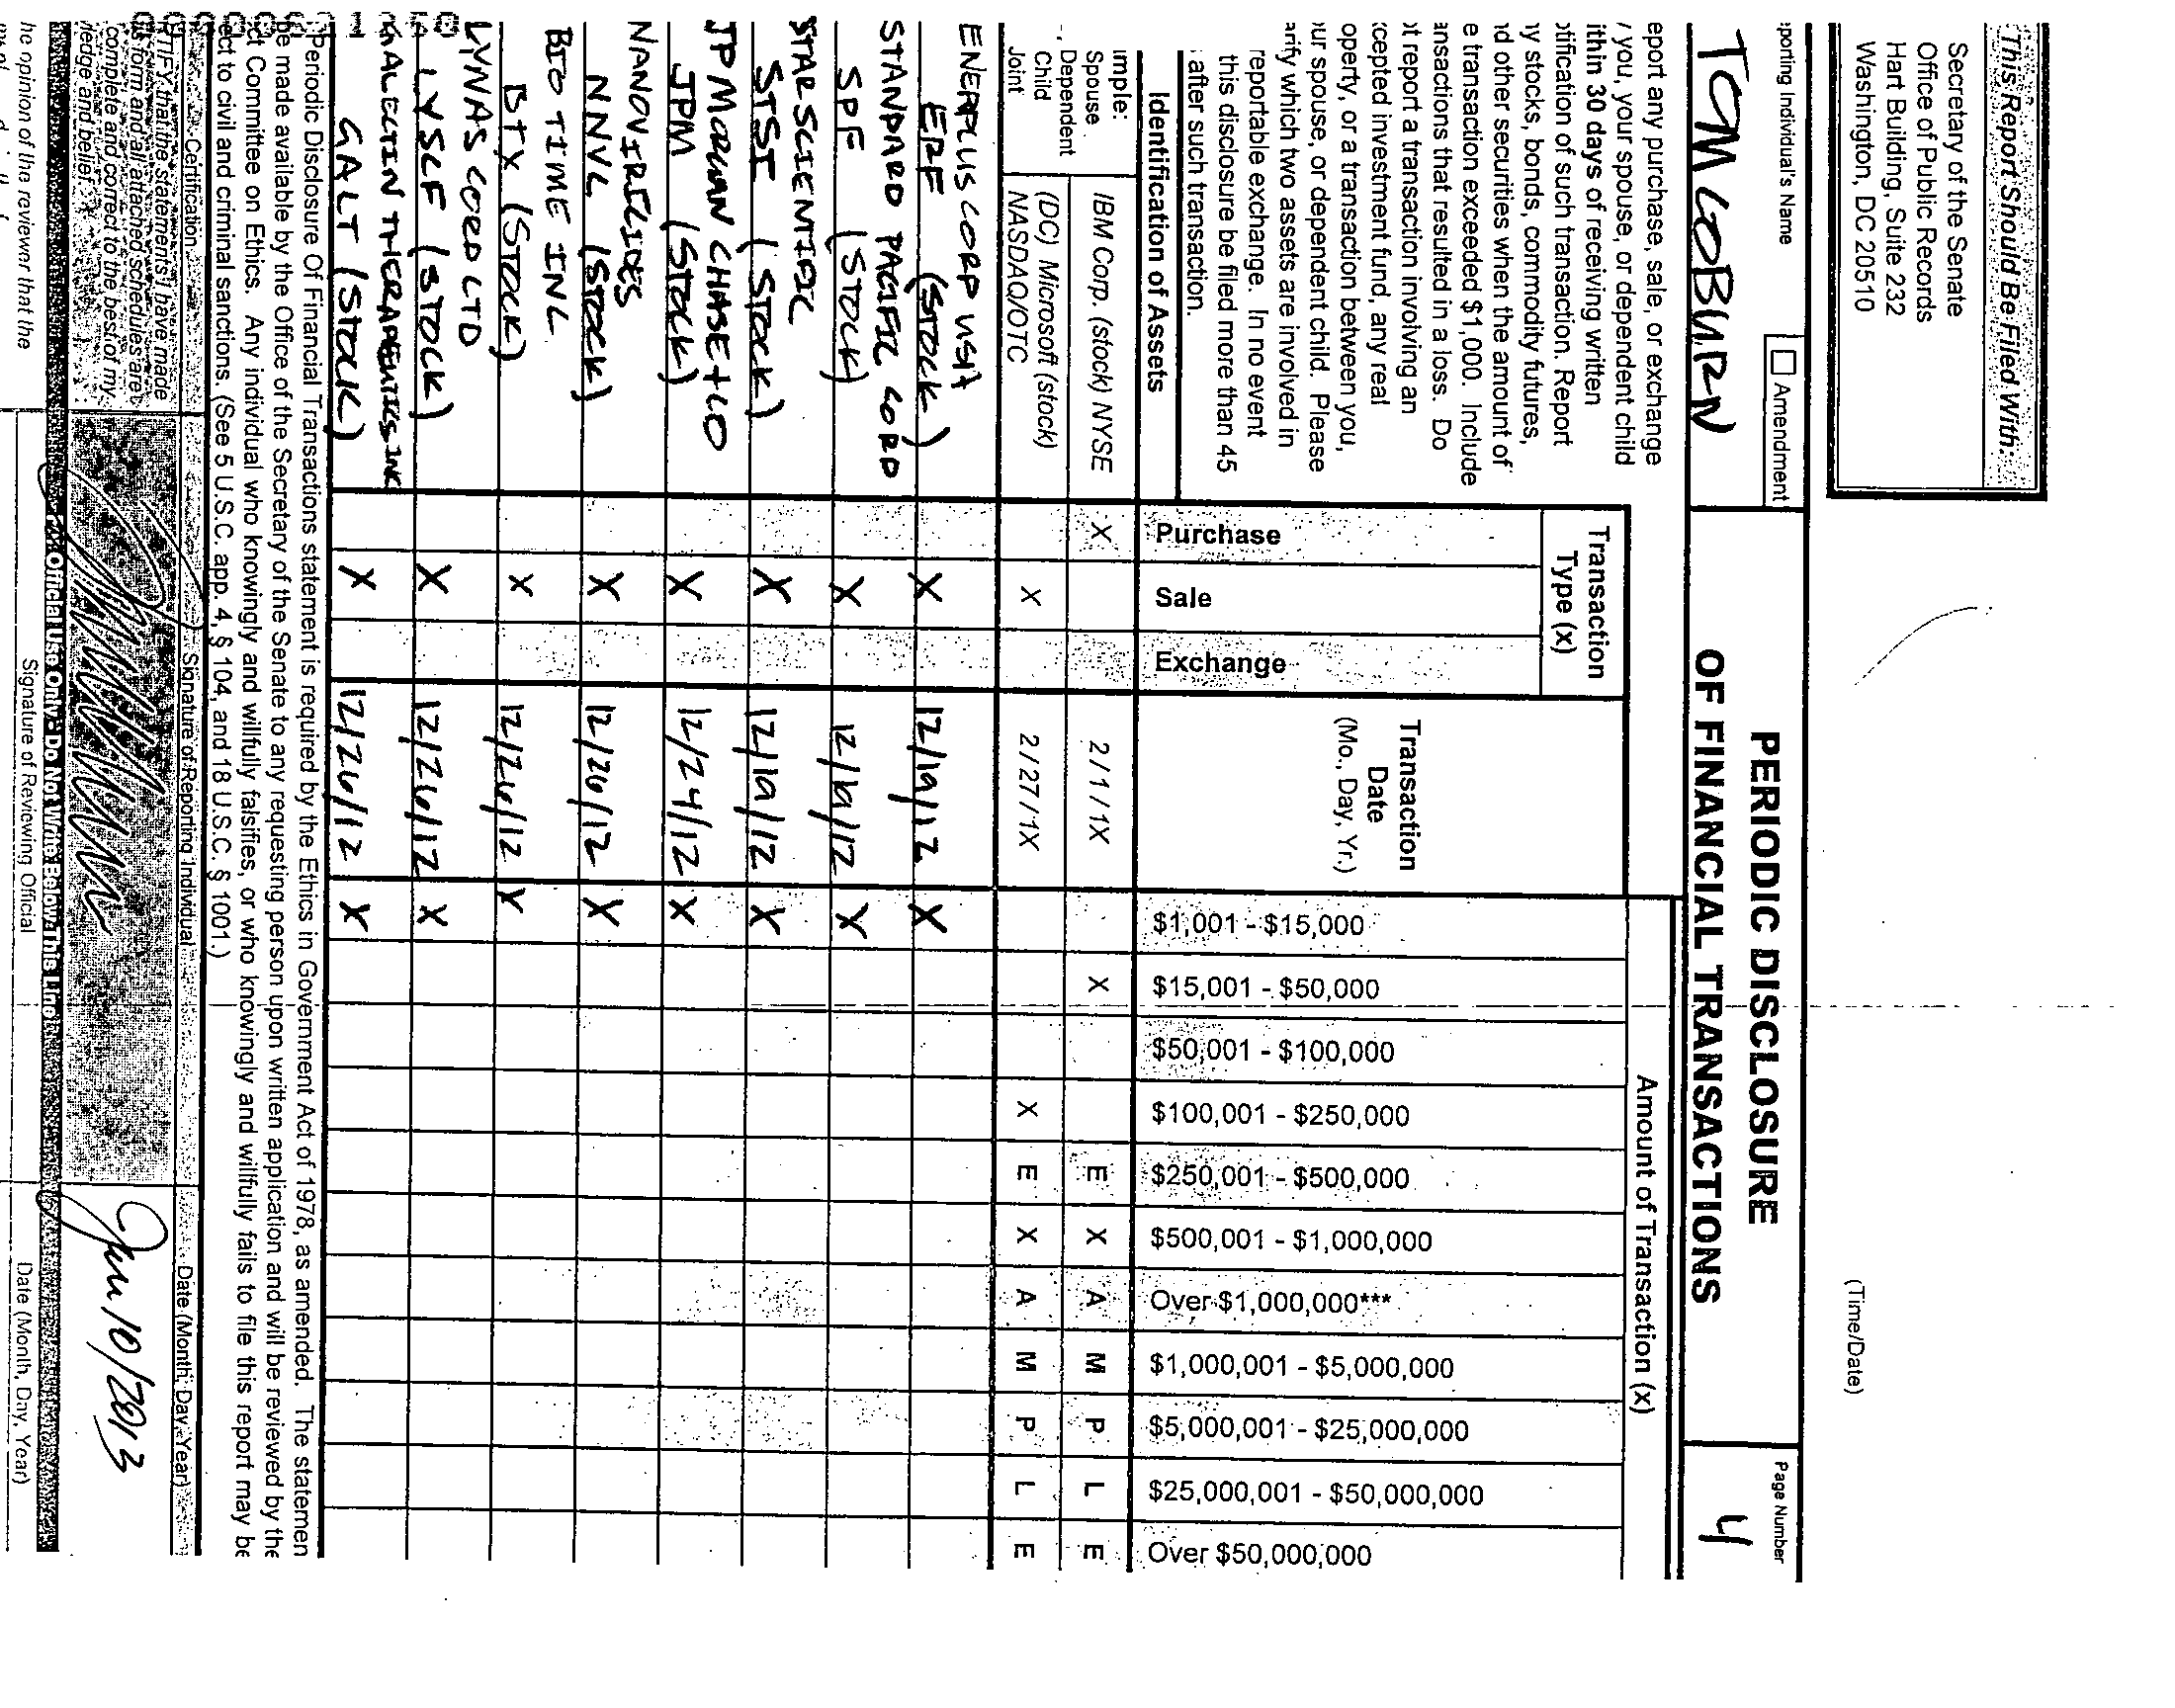 This Report Should Be Filed With:
Secretary of the Senate
Office of Public Records
Hart Building, Suite 232
Washington, DC 20510
(Time/Date)
PERIODIC DISCLOSURE
OF FINANCIAL TRANSACTIONS
porting Individual's Name
Amendment
TOM COBURN
Page Number
4
eport any purchase, sale, or exchange
you, your spouse, or dependent child
ithin 30 days of receiving written
otification of such transaction. Report
ny stocks, bonds, commodity futures,
nd other securities when the amount of
e transaction exceeded $1,000. Include
ansactions that resulted in a loss. Do
ot report a transaction involving an
cepted investment fund, any real
operty, or a transaction between you,
ur spouse, or dependent child. Please
arify which two assets are involved in
reportable exchange. In no event
this disclosure be filed more than 45
after such transaction.
Transaction
Type (x)
Transaction
Date
(Mo., Day, Yr.)
Amount of Transaction (x)
Identification of Assets
Purchase
Sale
Exchange
$1,001 - $15,000
$15,001 - $50,000
$50,001 - $100,000
$100,001 - $250,000
$250,001 - $500,000
$500,001 - $1,000,000
Over $1,000,000***
$1,000,001 - $5,000,000
$5,000,001 - $25,000,000
$25,000,001 - $50,000,000
Over $50,000,000
mple:
Spouse
Dependent
Child
Joint
IBM Corp. (stock) NYSE X 2/1/1X X E X A M P L E
(DC) Microsoft (stock)
NASDAQ/OTC X 2/27/1X X E X A M P L E
ENERPLUS CORP
ERF (STOCK) X 12/19/12 X
STANDARD PACIFIC CORP
SPF (STOCK) X 12/19/12 X
STAR SCIENTIFIC
STSI (STOCK) X 12/19/12 X
JP MORGAN CHASE + CO
JPM (STOCK) X 12/24/12 X
NANOVIRICIDES
NNVC (STOCK) X 12/26/12 X
BIO TIME INC
BTX (STOCK) X 12/26/12 X
LYNAS CORP LTD
LYSCF (STOCK) X 12/26/12 X
GALECTIN THERAPEUTICS INC
GALT (STOCK) X 12/26/12 X
Periodic Disclosure Of Financial Transactions statement is required by the Ethics in Government Act of 1978, as amended. The statemen
be made available by the Office of the Secretary of the Senate to any requesting person upon written application and will be reviewed by the
ct Committee on Ethics. Any individual who knowingly and willfully falsifies, or who knowingly and willfully fails to file this report may be
ect to civil and criminal sanctions. (See 5 U.S.C. app. 4, § 104, and 18 U.S.C. § 1001.)
Certification
Signature of Reporting Individual
Date (Month, Day, Year)
TIFY that the statements I have made
s form and all attached schedules are
complete and correct to the best of my
ledge and belief.
Jan 10/2013
For Official Use Only - Do Not Write Below This Line
he opinion of the reviewer that the
Signature of Reviewing Official
Date (Month, Day, Year)